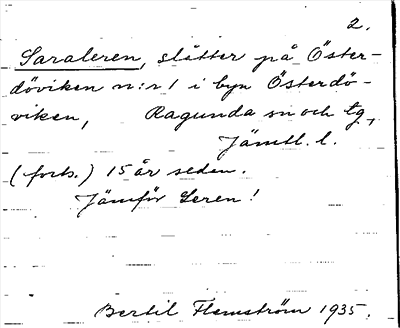 2.
Saraleren, slåtter på Öster-
döviken n:r 1 i byn Österdö-
viken, Ragunda sn och tg,
Jämtl. l.
(forts.) 15 år sedan.
Jämför Leren!
Bertil Flemström 1935.